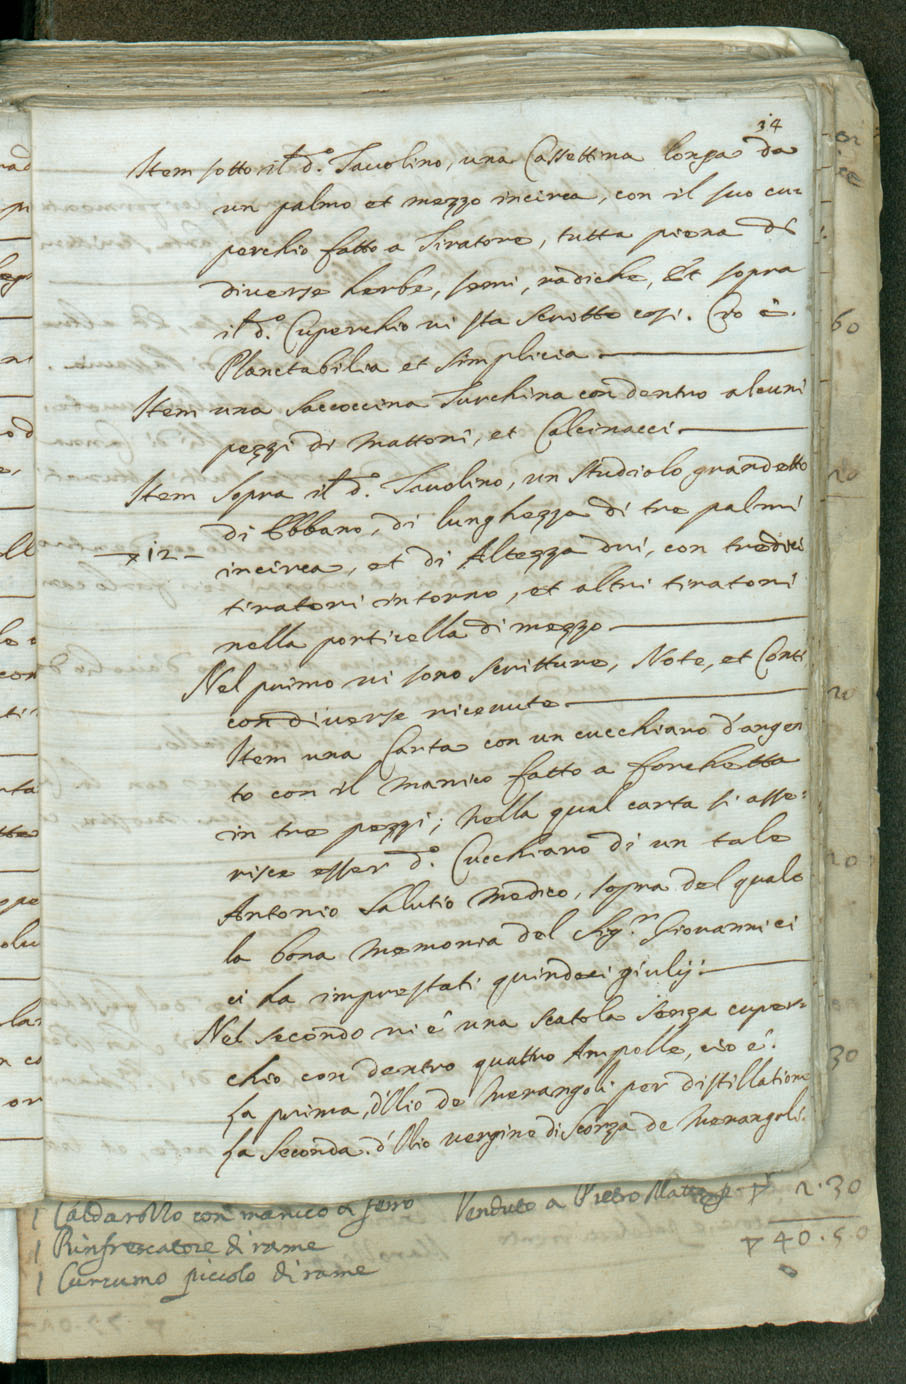 34
Item sotto il d.º Tavolino, una Cassettina longa da
un palmo et mezzo incirca, con il suo cu=
perchio fatto a Tiratore, tutta piena di
diverse herbe, semi, radiche, Et sopra
il d.º Cuperchio vi sta scritto cosi. Cio è.
Planctabilia et Simplicia
Item una saccoccina Turchina con dentro alcuni
pezzi di Mattoni, et Calcinacci
Item sopra il d.º Tavolino, un studiolo grandetto
di Ebbano, di lunghezza di tre palmi
12
incirca, et di Altezza dui, con tredici
tiratori intorno, et altri tiratori
nella porticella di mezzo
Nel primo vi sono scritture, Note, et Conti
con diverse ricevute
Item una Carta con un cucchiaro d'argen
to con il Manico fatto a forchetta
in tre pezzi; Nella qual carta si asse=
risce esser d.º Cucchiaro di un tale
Antonio Salutio Medico, sopra del quale
la bona Memoria del Sig.r Giovanni ci
ci ha imprestati quindeci giulij
Nel secondo vi è una scatola senza cuper=
chio con dentro quattro Ampolle, cio è.
La prima, d'Olio de Merangoli per distillatione
La Seconda. d'Olio vergine di scorza de Merangoli.
1 Caldarozzo con manico a ferro Venduto a Pietro 2.30
1 Rinfrescatore di rame 40.50
1 piccolo di rame
60
20
20
20
30